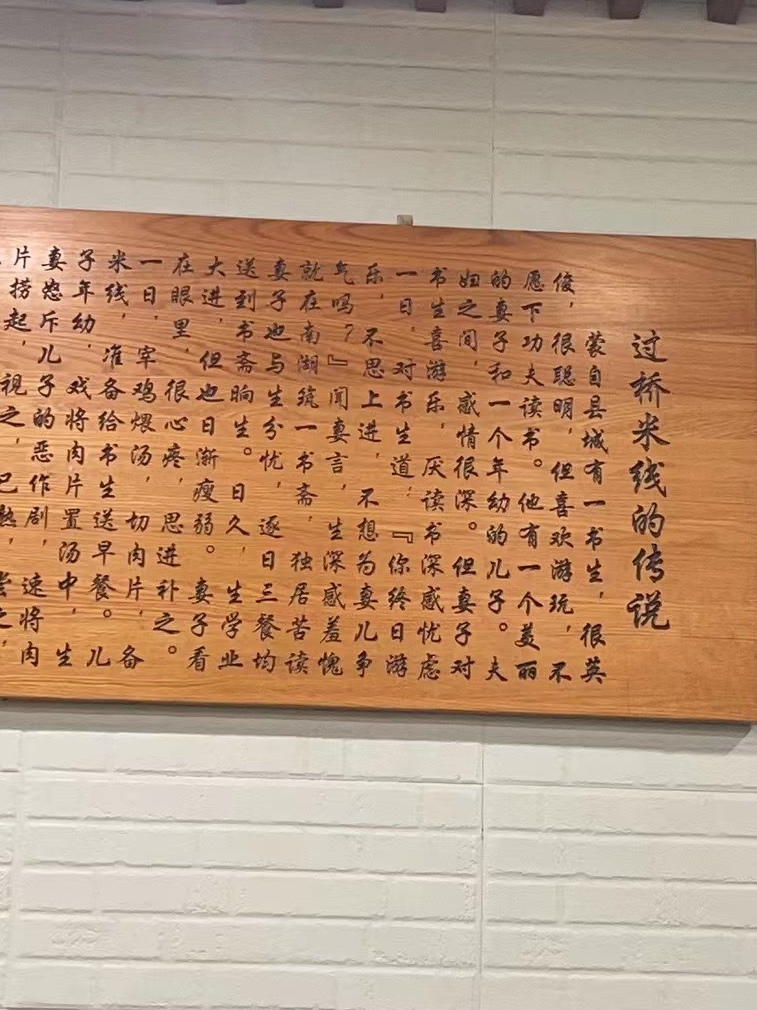 过桥米线的传说
蒙自县城有一书生，很英
俊，很聪明，但喜欢游玩，不
愿下功夫读书。他有一个美丽
的妻子和一个年幼的儿子。夫
妇之间，感情很深。但妻子对
书生喜游乐，厌读书深感忧虑
一日，对书生道：『你终日游
乐，不思上进，不想为妻儿争
气吗？』闻妻言，生深感羞愧
就在南湖筑一书斋，独居苦读
妻子也与生分忧，逐日三餐均
送到书斋晌生。日久，生学业
大进，但也日渐瘦弱。妻子看
在眼里，很心疼，思进补之。
一日，牢鸡煨汤，切肉片，备
米线，准备给书生送早餐。儿
子年幼，戏将肉片置汤中，生
妻怒斥儿子的恶作剧，速将肉
片捞起，视之，已熟，尝之，